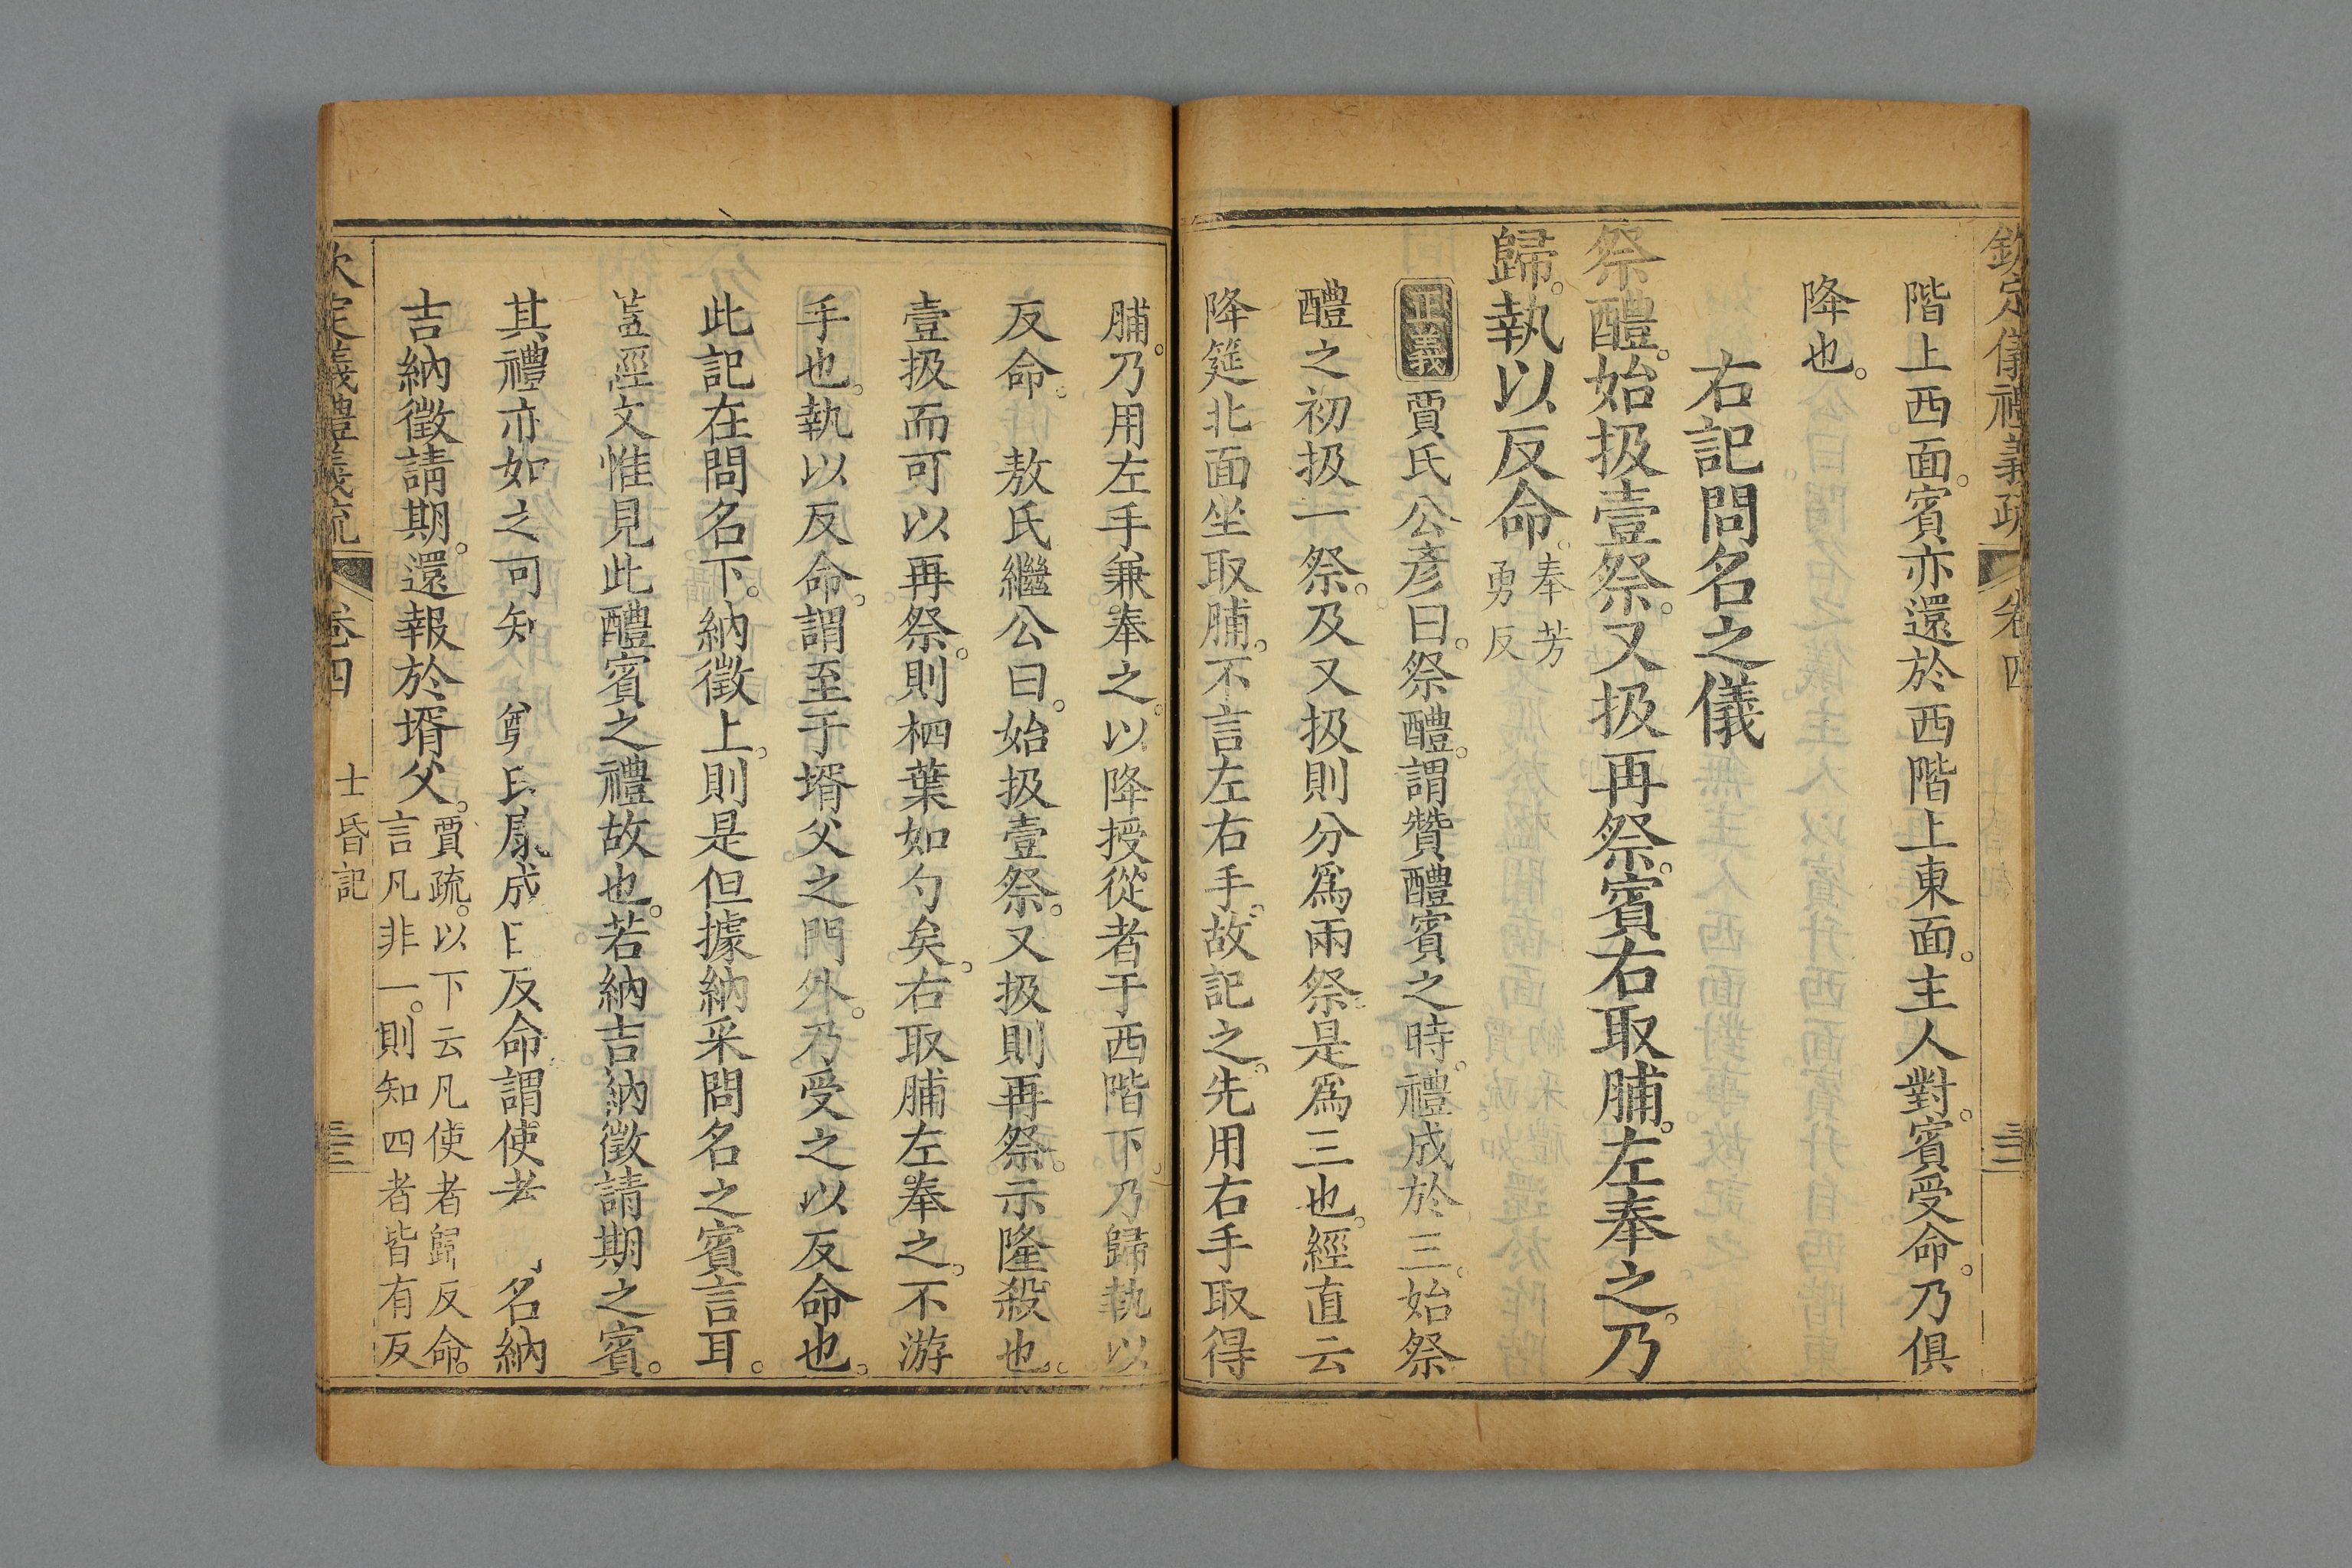 欽定儀禮義疏 卷四
階上西面。賓亦還於西階上東面。主人對。賓受命。乃俱
降也。
右記問名之儀
祭醴。始扱壹祭。又扱再祭。賓右取脯。左奉之。乃
歸。執以反命。奉芳勇反
正義 賈氏公彥曰。祭醴。謂贊醴賓之時。禮成於三。始祭
醴之初扱一祭。及又扱則分爲兩祭。是爲三也。經直云
降筵北面坐取脯。不言左右手。故記之。先用右手取得
脯。乃用左手兼奉之。以降授從者于西階下。乃歸執以
反命。 敖氏繼公曰。始扱壹祭。又扱則再祭。示隆殺也。
壹扱而可以再祭。則柶葉如勺矣。右取脯左奉之。不游
手也。執以反命。謂至于壻父之門外。乃受之以反命也。
此記在問名下。納徵上。則是但據納采問名之賓言耳。
蓋經文惟見此醴賓之禮故也。若納吉納徵請期之賓。
其禮亦如之可知 氏 反命謂使者 名納
吉納徵請期。還報於壻父。賈疏。以下云凡使者歸反命。言凡非一。則知四者皆有反
欽定儀禮義疏 卷四 士昏記